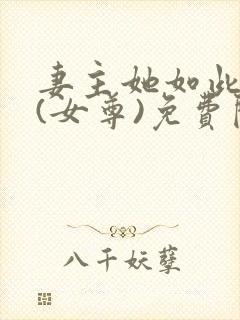 妻主她如此
(女尊)免費
八千妖孽